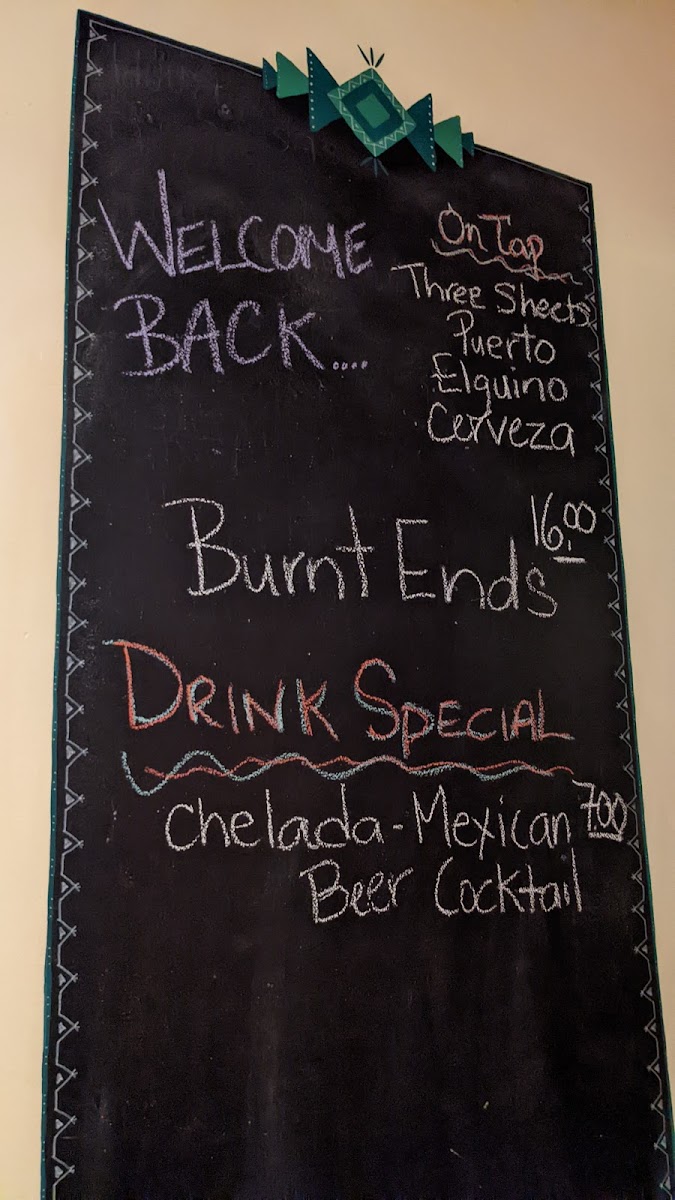 WELCOME
BACK....
On Tap
Three Sheets
Puerto
Elguino
Cerveza
Burnt Ends 16.00
DRINK SPECIAL
Chelada - Mexican 7.00
Beer Cocktail